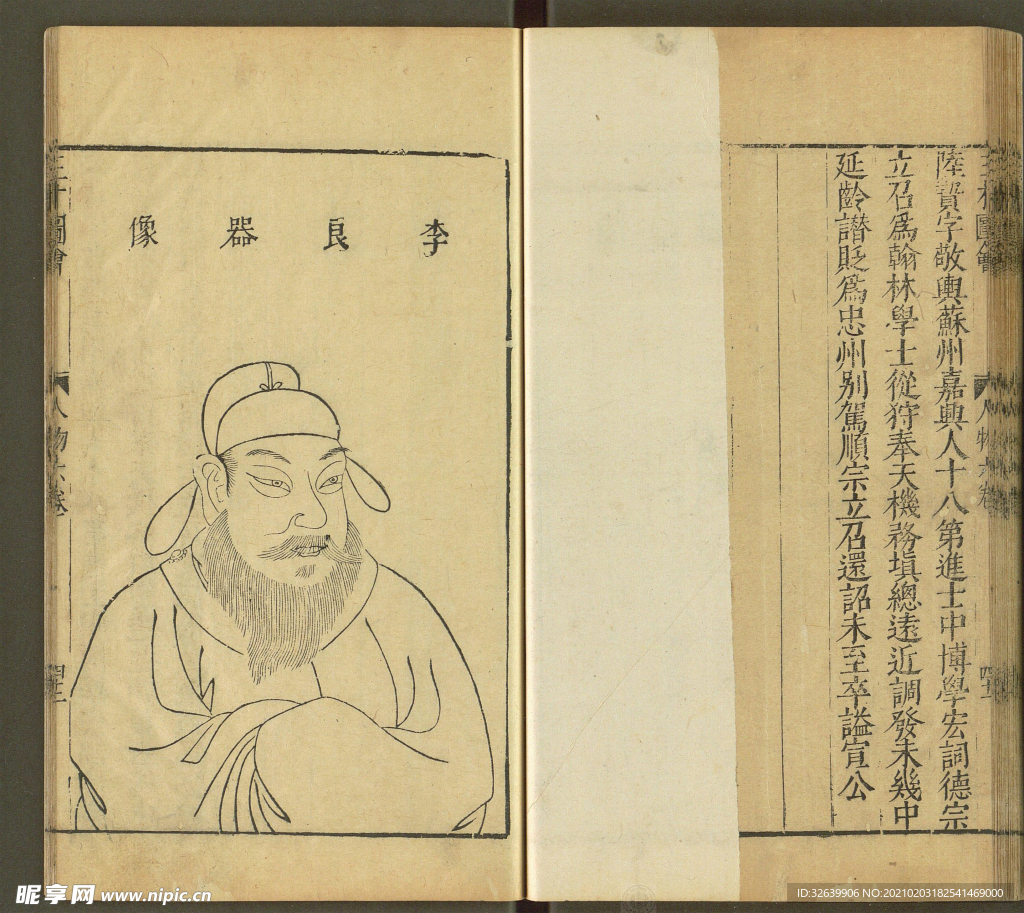 陸贄字敬輿蘇州嘉興人十八第進士中博學宏詞德宗
立召爲翰林學士從狩奉天機務塡總遠近調發未幾中
延齡譖貶爲忠州别駕順宗立召還詔未至卒謚宣公
李良器像
三才圖會
人物六卷
昵享网 www.nipic.cn
ID:32639906 NO:20210203182541469000